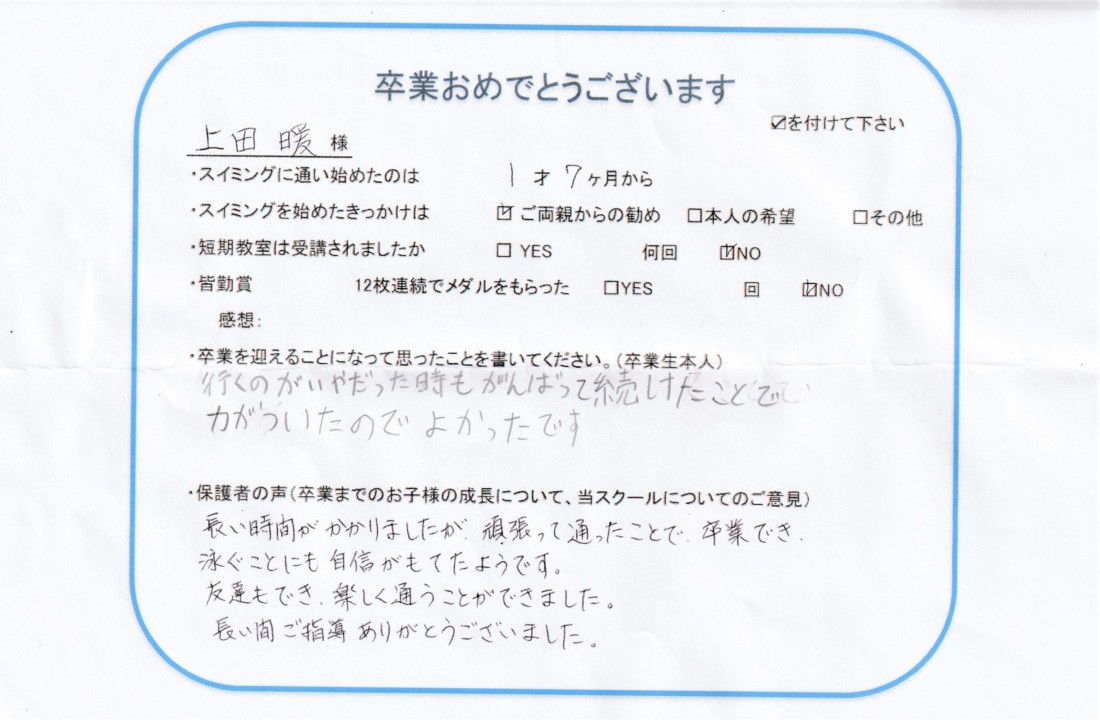 卒業おめでとうございます
☑を付けて下さい
上田 暖 様
・スイミングに通い始めたのは 1 才 7 ヶ月から
・スイミングを始めたきっかけは ☑ ご両親からの勧め □本人の希望 □その他
・短期教室は受講されましたか □ YES 何回 ☑NO
・皆勤賞 12枚連続でメダルをもらった □YES 回 ☑NO
感想:
・卒業を迎えることになって思ったことを書いてください。(卒業生本人)
行くのがいやだった時もがんばって続けたことで
力がついたのでよかったです
・保護者の声(卒業までのお子様の成長について、当スクールについてのご意見)
長い時間がかかりましたが、頑張って通ったことで、卒業でき、
泳ぐことにも自信がもてたようです。
友達もでき、楽しく通うことができました。
長い間ご指導ありがとうございました。